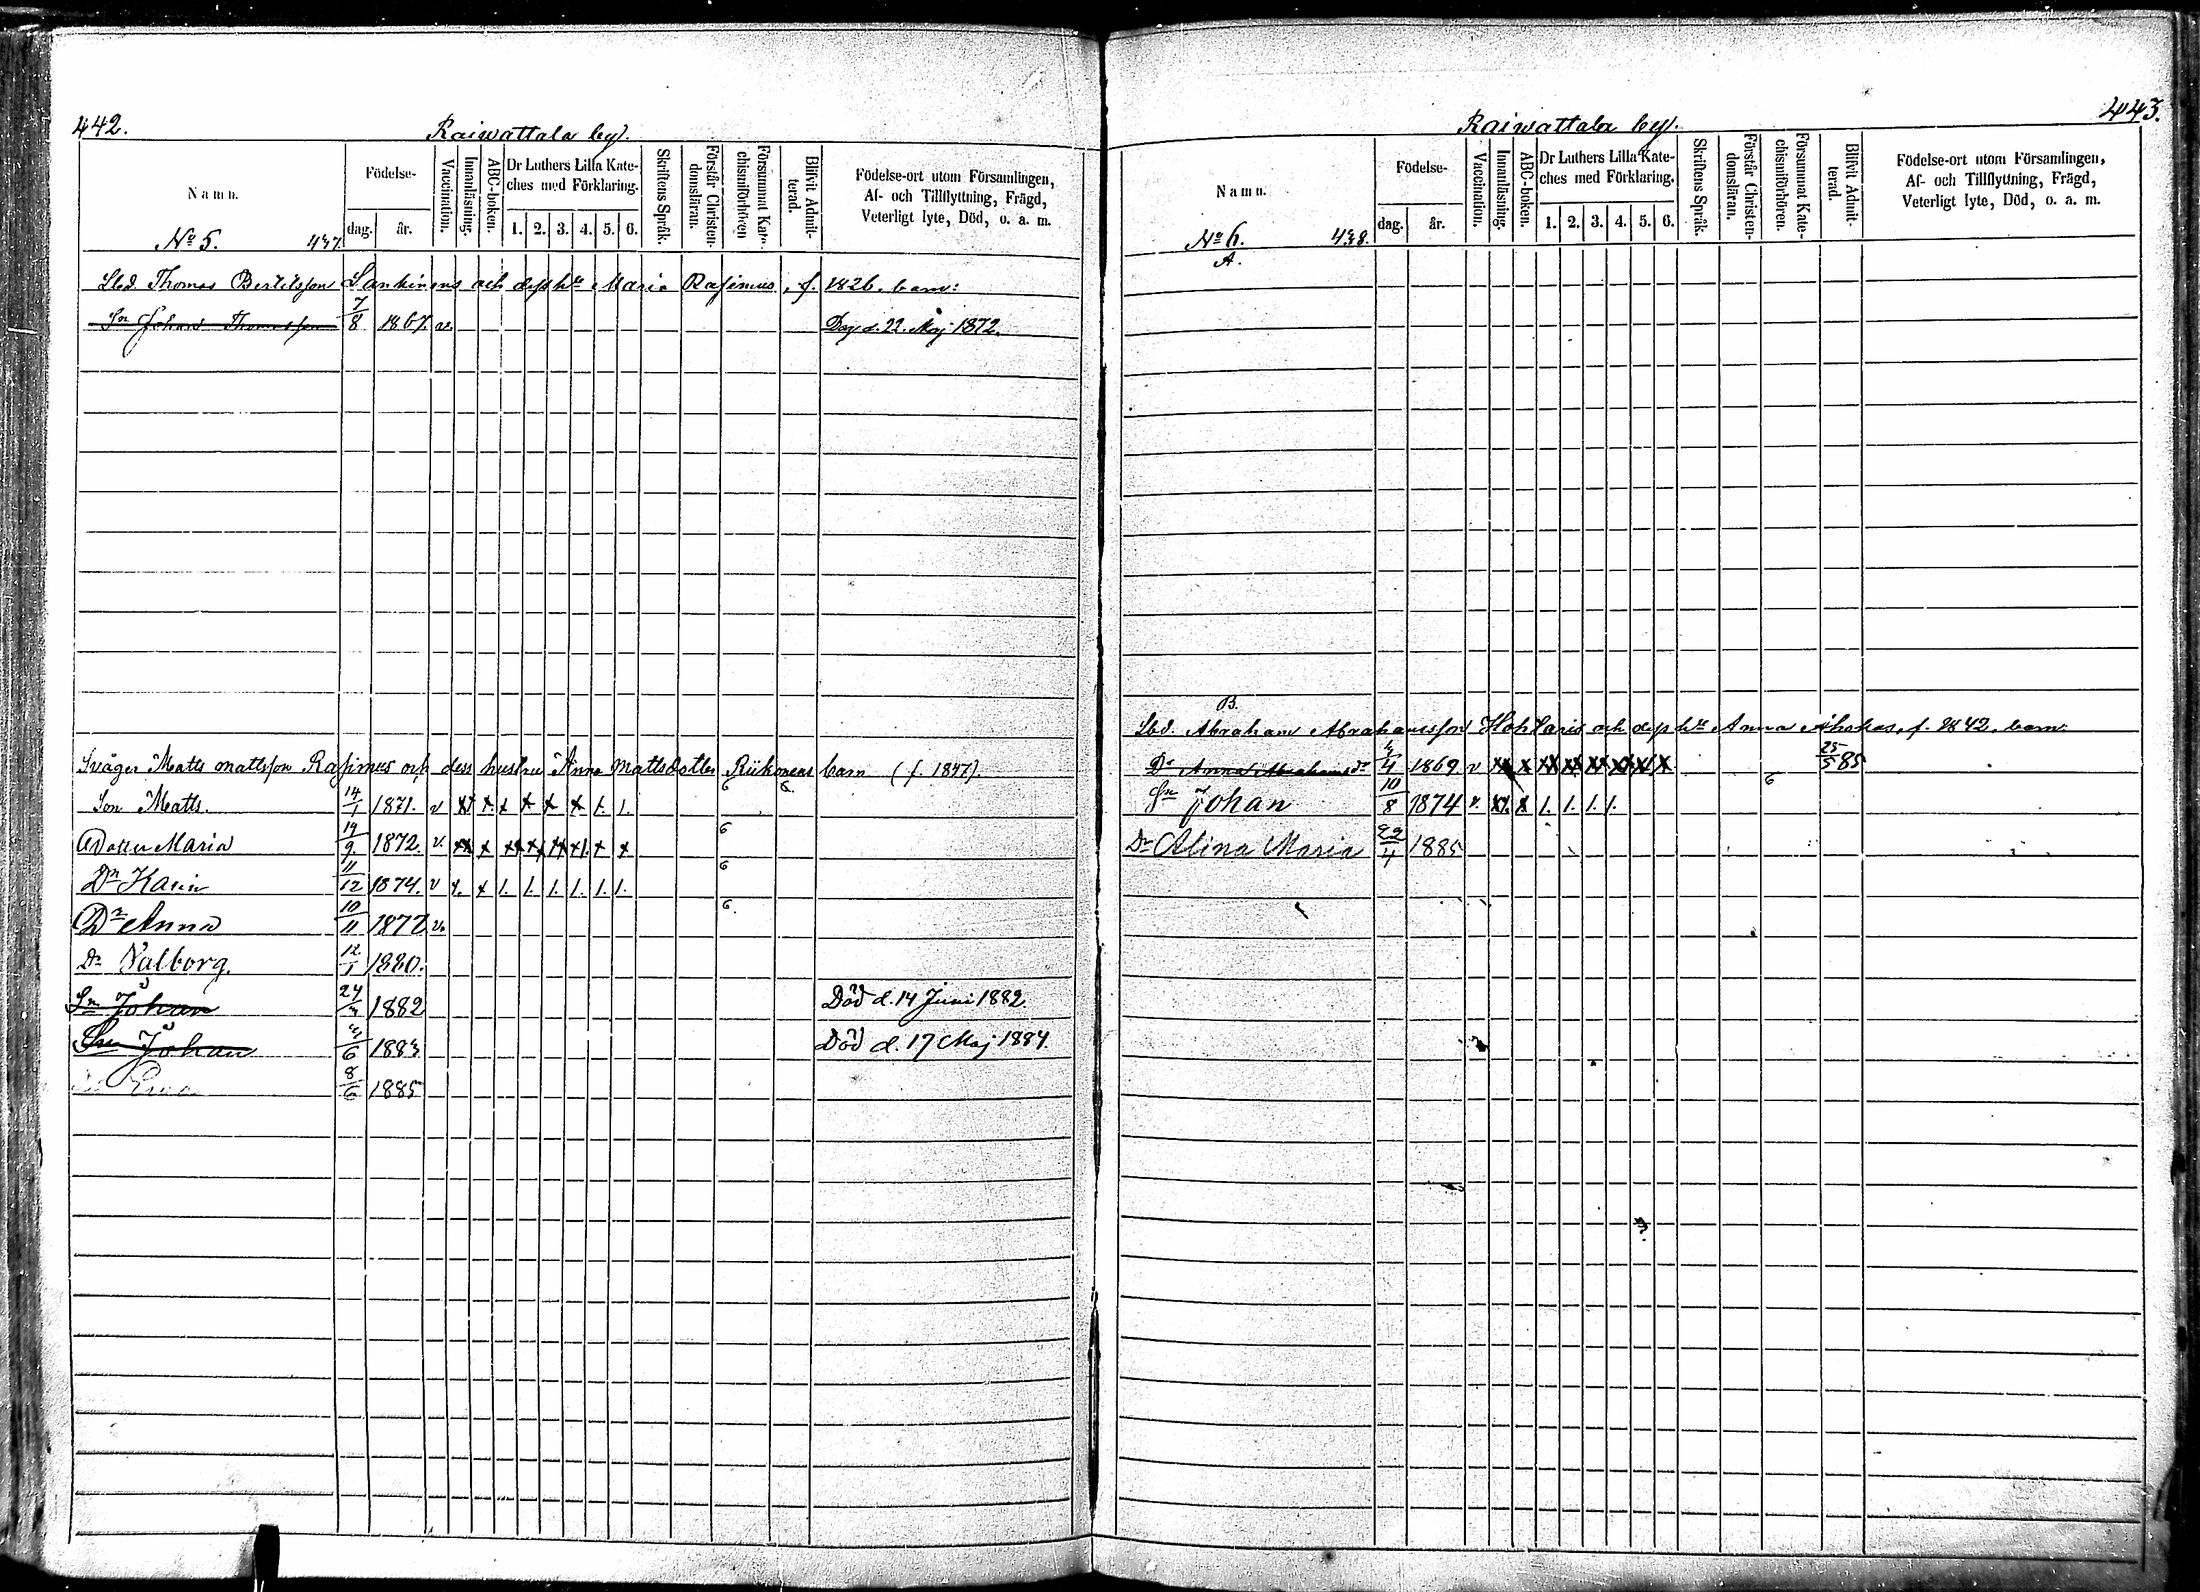 442.
Raiwattala by.
Namn.
Födelse-
dag. år.
Vaccination.
Innanläsning.
ABC-boken.
Dr Luthers Lilla Kate-
ches med Förklaring.
1. 2. 3. 4. 5. 6.
Skriftens Språk.
Förstår Christen-
domsläran.
Försummat Kate-
chismiförhören
Blifvit Admit-
terad.
Födelse-ort utom Församlingen,
Af- och Tillflyttning, Frägd,
Veterligt lyte, Död, o. a. m.
No 5. 437.
Lbd. Thomas Bertilsson Lankinens och dess hu Maria Rasimus, f. 1826. barn:
Sn Johan Thomasson 7/8 1867. v. Dog d. 22. Maj 1872.
Svåger Matts Mattsson Rasimus och dess hustru Anna Mattsdotter Riikonens barn (f. 1847).
Son Matts. 14/1 1871. v x x x x x x 1. 1. 6 6.
Dotter Maria 19/9. 1872. v. xx x xx xx xx x1. x x 6
Dr Karin 11/12 1874. v x. x 1. 1. 1. 1. 1. 1. 6
Dr Anna 10/11 1877 v. 6.
Dr Valborg. 12/1 1880.
Sn Johan 24/3 1882 Död d. 14 Juni 1882.
Son Johan 3/6 1883 Död d. 17 Maj 1884.
Eva 8/6 1885
443.
Raiwattala by.
Namn.
Födelse-
dag. år.
Vaccination.
Innanläsning.
ABC-boken.
Dr Luthers Lilla Kate-
ches med Förklaring.
1. 2. 3. 4. 5. 6.
Skriftens Språk.
Förstår Christen-
domsläran.
Försummat Kate-
chismiförhören.
Blifvit Admit-
terad.
Födelse-ort utom Församlingen,
Af- och Tillflyttning, Frägd,
Veterligt lyte, Död, o. a. m.
No 6. 438.
A.
B.
Lbd. Abraham Abrahamsson och dess hu Anna f. 1842. barn.
Dr Anna Abrahamsdr 3/4 1869 v xx x xx xx xx xx x x 25/5 85
Sn Johan 10/8 1874 v. xx x 1. 1. 1. 1. 6
Dr Alina Maria 22/4 1885